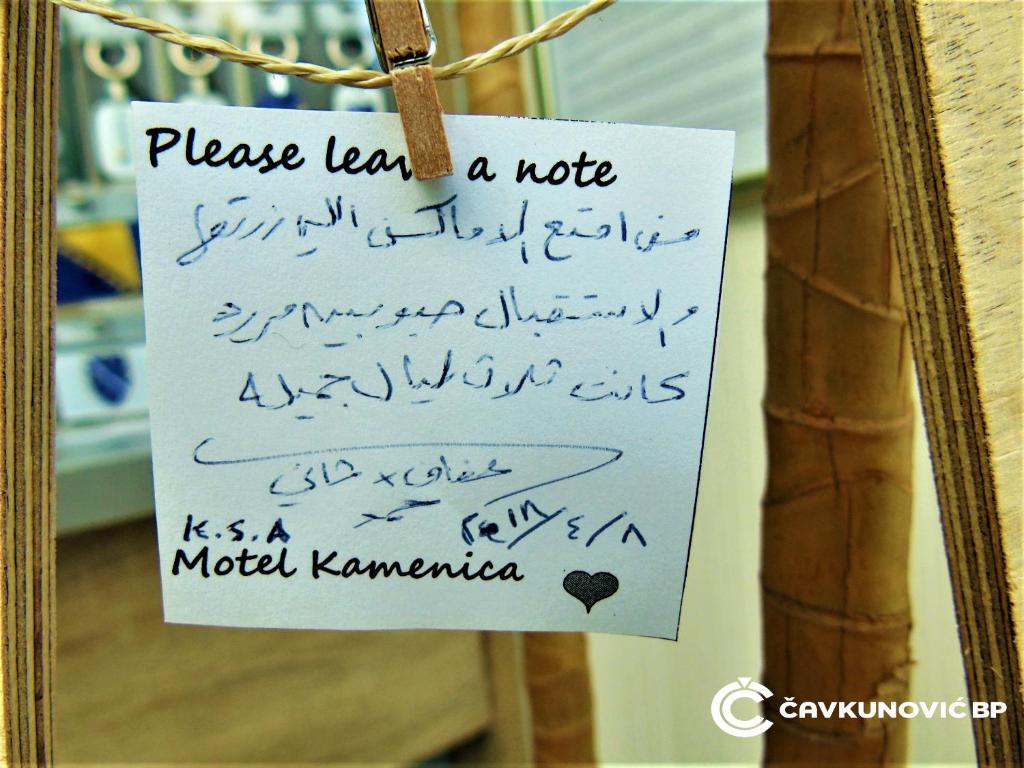 Please leave a note
من امتع الاماكن اللي زرتها
والاستقبال جيد
كانت ثلاث ليال جميله
عفاف × هاني
محمد
K.S.A ٢٠١٨/٤/٨
Motel Kamenica
ČAVKUNOVIĆ BP